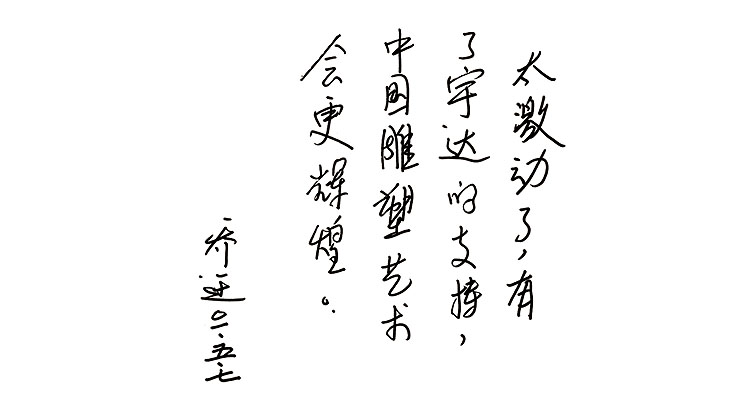 太激动了，有
了宇达的支持，
中国雕塑艺术
会更辉煌。
乔迁 二〇一一.五.七